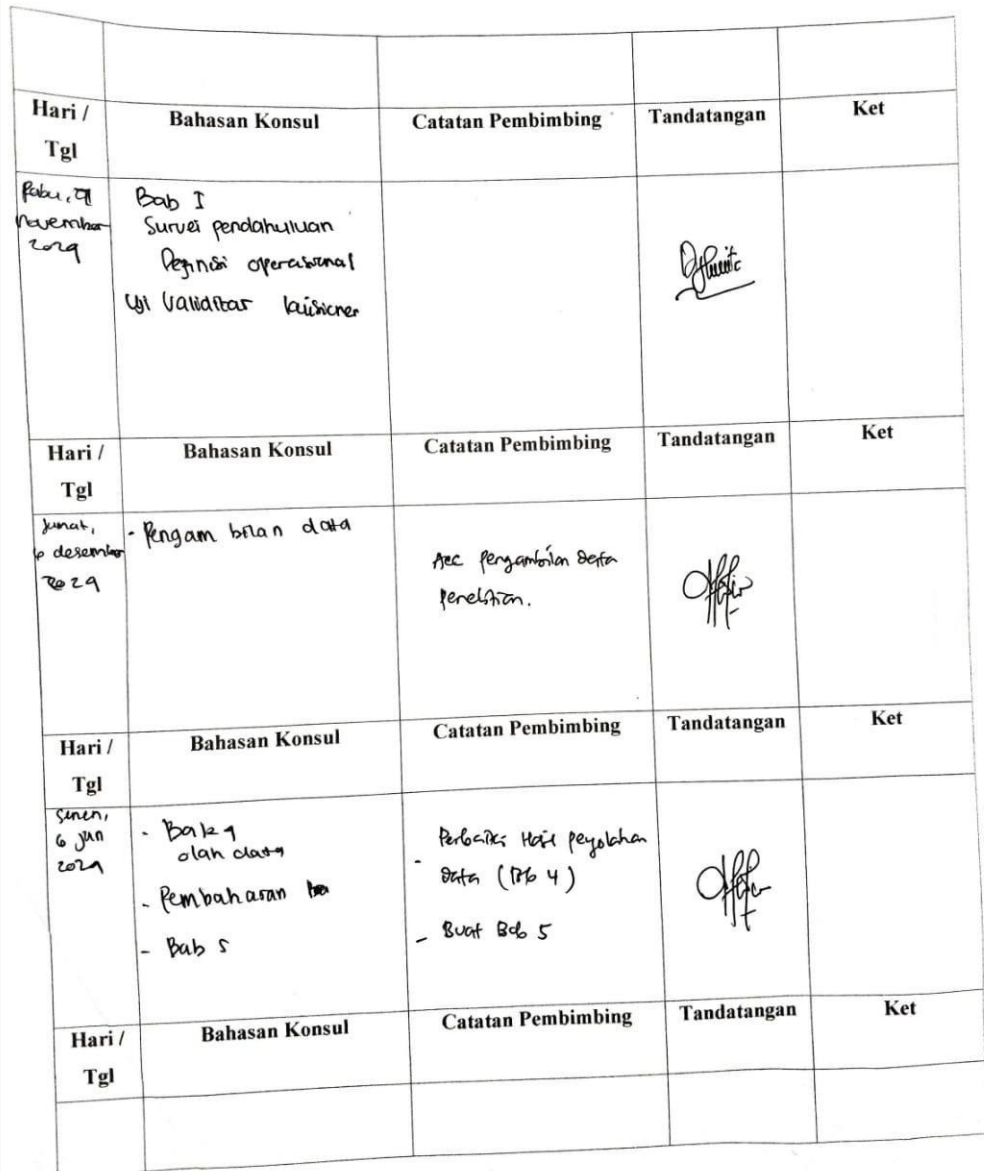 Hari / Bahasan Konsul Catatan Pembimbing Tandatangan Ket
Tgl
Rabu,
november
2024
Bab I
Survei pendahuluan
Definisi operasional
Uji Validitas kuisioner
Hari / Bahasan Konsul Catatan Pembimbing Tandatangan Ket
Tgl
Jumat,
6 desember
2024
- Pengambilan data
Acc pengambilan Data
penelitian.
Hari / Bahasan Konsul Catatan Pembimbing Tandatangan Ket
Tgl
Senin,
6 Jan
2024
- Bab 4
olan data
- Pembahasan
- Bab 5
- Perbaiki Hasil pengolahan
Data (Bab 4)
- Buat Bab 5
Hari / Bahasan Konsul Catatan Pembimbing Tandatangan Ket
Tgl